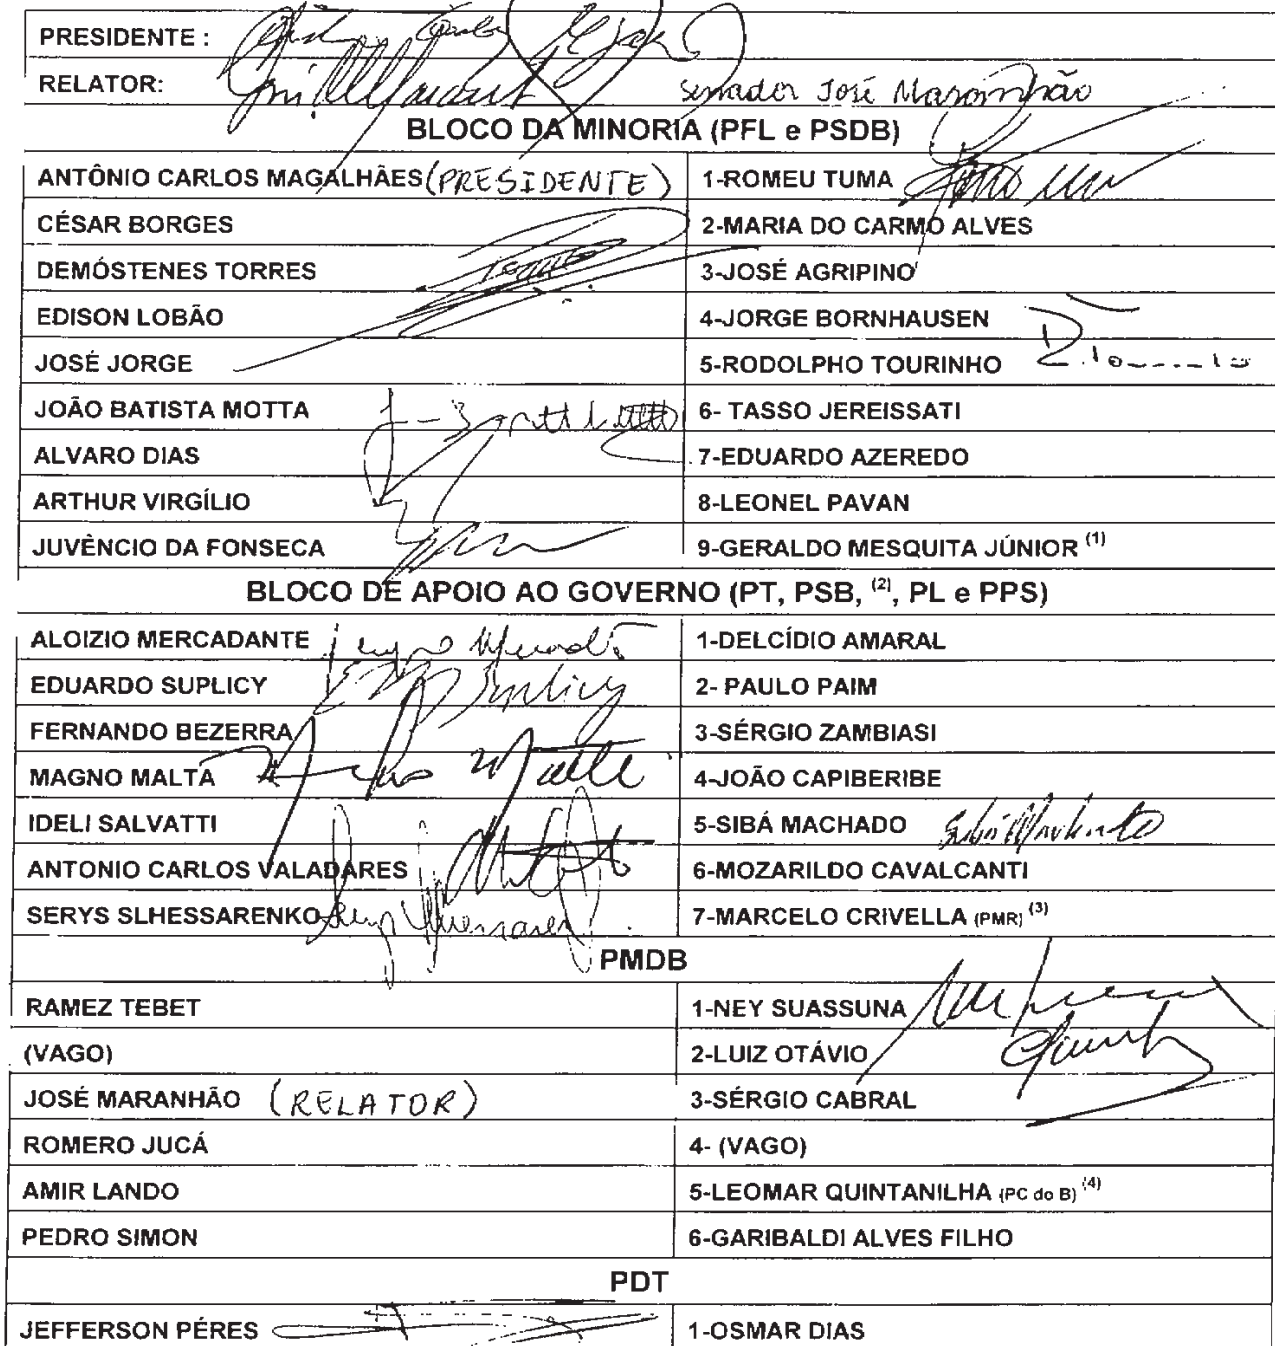 PRESIDENTE :
RELATOR: Senador José Maranhão
BLOCO DA MINORIA (PFL e PSDB)
ANTÔNIO CARLOS MAGALHÃES (PRESIDENTE) 1-ROMEU TUMA
CÉSAR BORGES 2-MARIA DO CARMO ALVES
DEMÓSTENES TORRES 3-JOSÉ AGRIPINO
EDISON LOBÃO 4-JORGE BORNHAUSEN
JOSÉ JORGE 5-RODOLPHO TOURINHO
JOÃO BATISTA MOTTA 6- TASSO JEREISSATI
ALVARO DIAS 7-EDUARDO AZEREDO
ARTHUR VIRGÍLIO 8-LEONEL PAVAN
JUVÊNCIO DA FONSECA 9-GERALDO MESQUITA JÚNIOR (1)
BLOCO DE APOIO AO GOVERNO (PT, PSB, (2), PL e PPS)
ALOIZIO MERCADANTE 1-DELCÍDIO AMARAL
EDUARDO SUPLICY Suplicy 2- PAULO PAIM
FERNANDO BEZERRA 3-SÉRGIO ZAMBIASI
MAGNO MALTA 4-JOÃO CAPIBERIBE
IDELI SALVATTI 5-SIBÁ MACHADO Sibá Machado
ANTONIO CARLOS VALADARES 6-MOZARILDO CAVALCANTI
SERYS SLHESSARENKO 7-MARCELO CRIVELLA (PMR) (3)
PMDB
RAMEZ TEBET 1-NEY SUASSUNA
(VAGO) 2-LUIZ OTÁVIO
JOSÉ MARANHÃO (RELATOR) 3-SÉRGIO CABRAL
ROMERO JUCÁ 4- (VAGO)
AMIR LANDO 5-LEOMAR QUINTANILHA (PC do B) (4)
PEDRO SIMON 6-GARIBALDI ALVES FILHO
PDT
JEFFERSON PÉRES 1-OSMAR DIAS